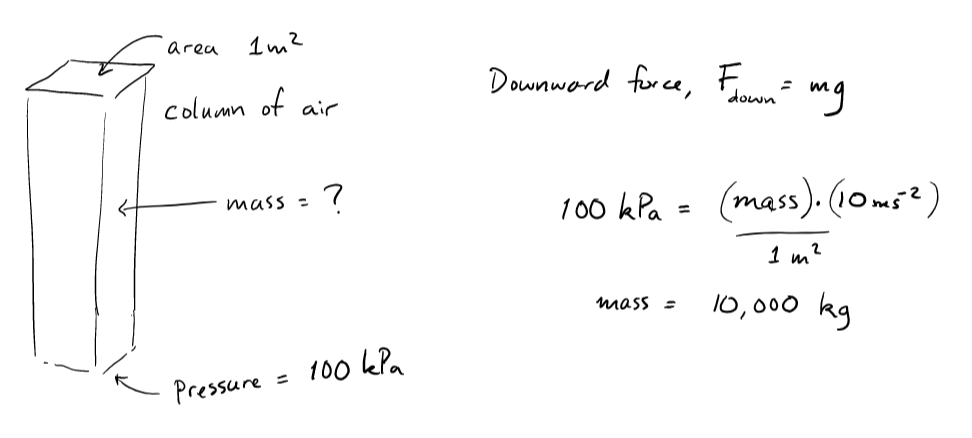 area 1m²
column of air
mass = ?
Pressure = 100 kPa
Downward force, F_down = mg
100 kPa = (mass).(10 ms⁻²)
1 m²
mass = 10,000 kg